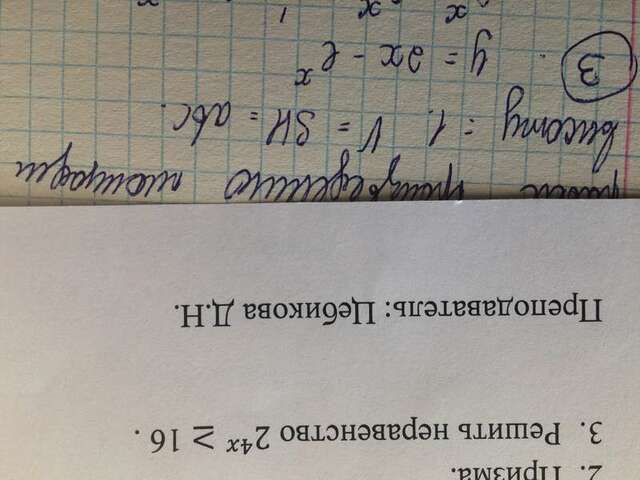 2. Призма.
3. Решить неравенство 2⁴ˣ ≥ 16 .
Преподаватель: Цебикова Д.Н.
произведению площади
высоту : 1. V = SH = abc.
3. y = 2x - eˣ